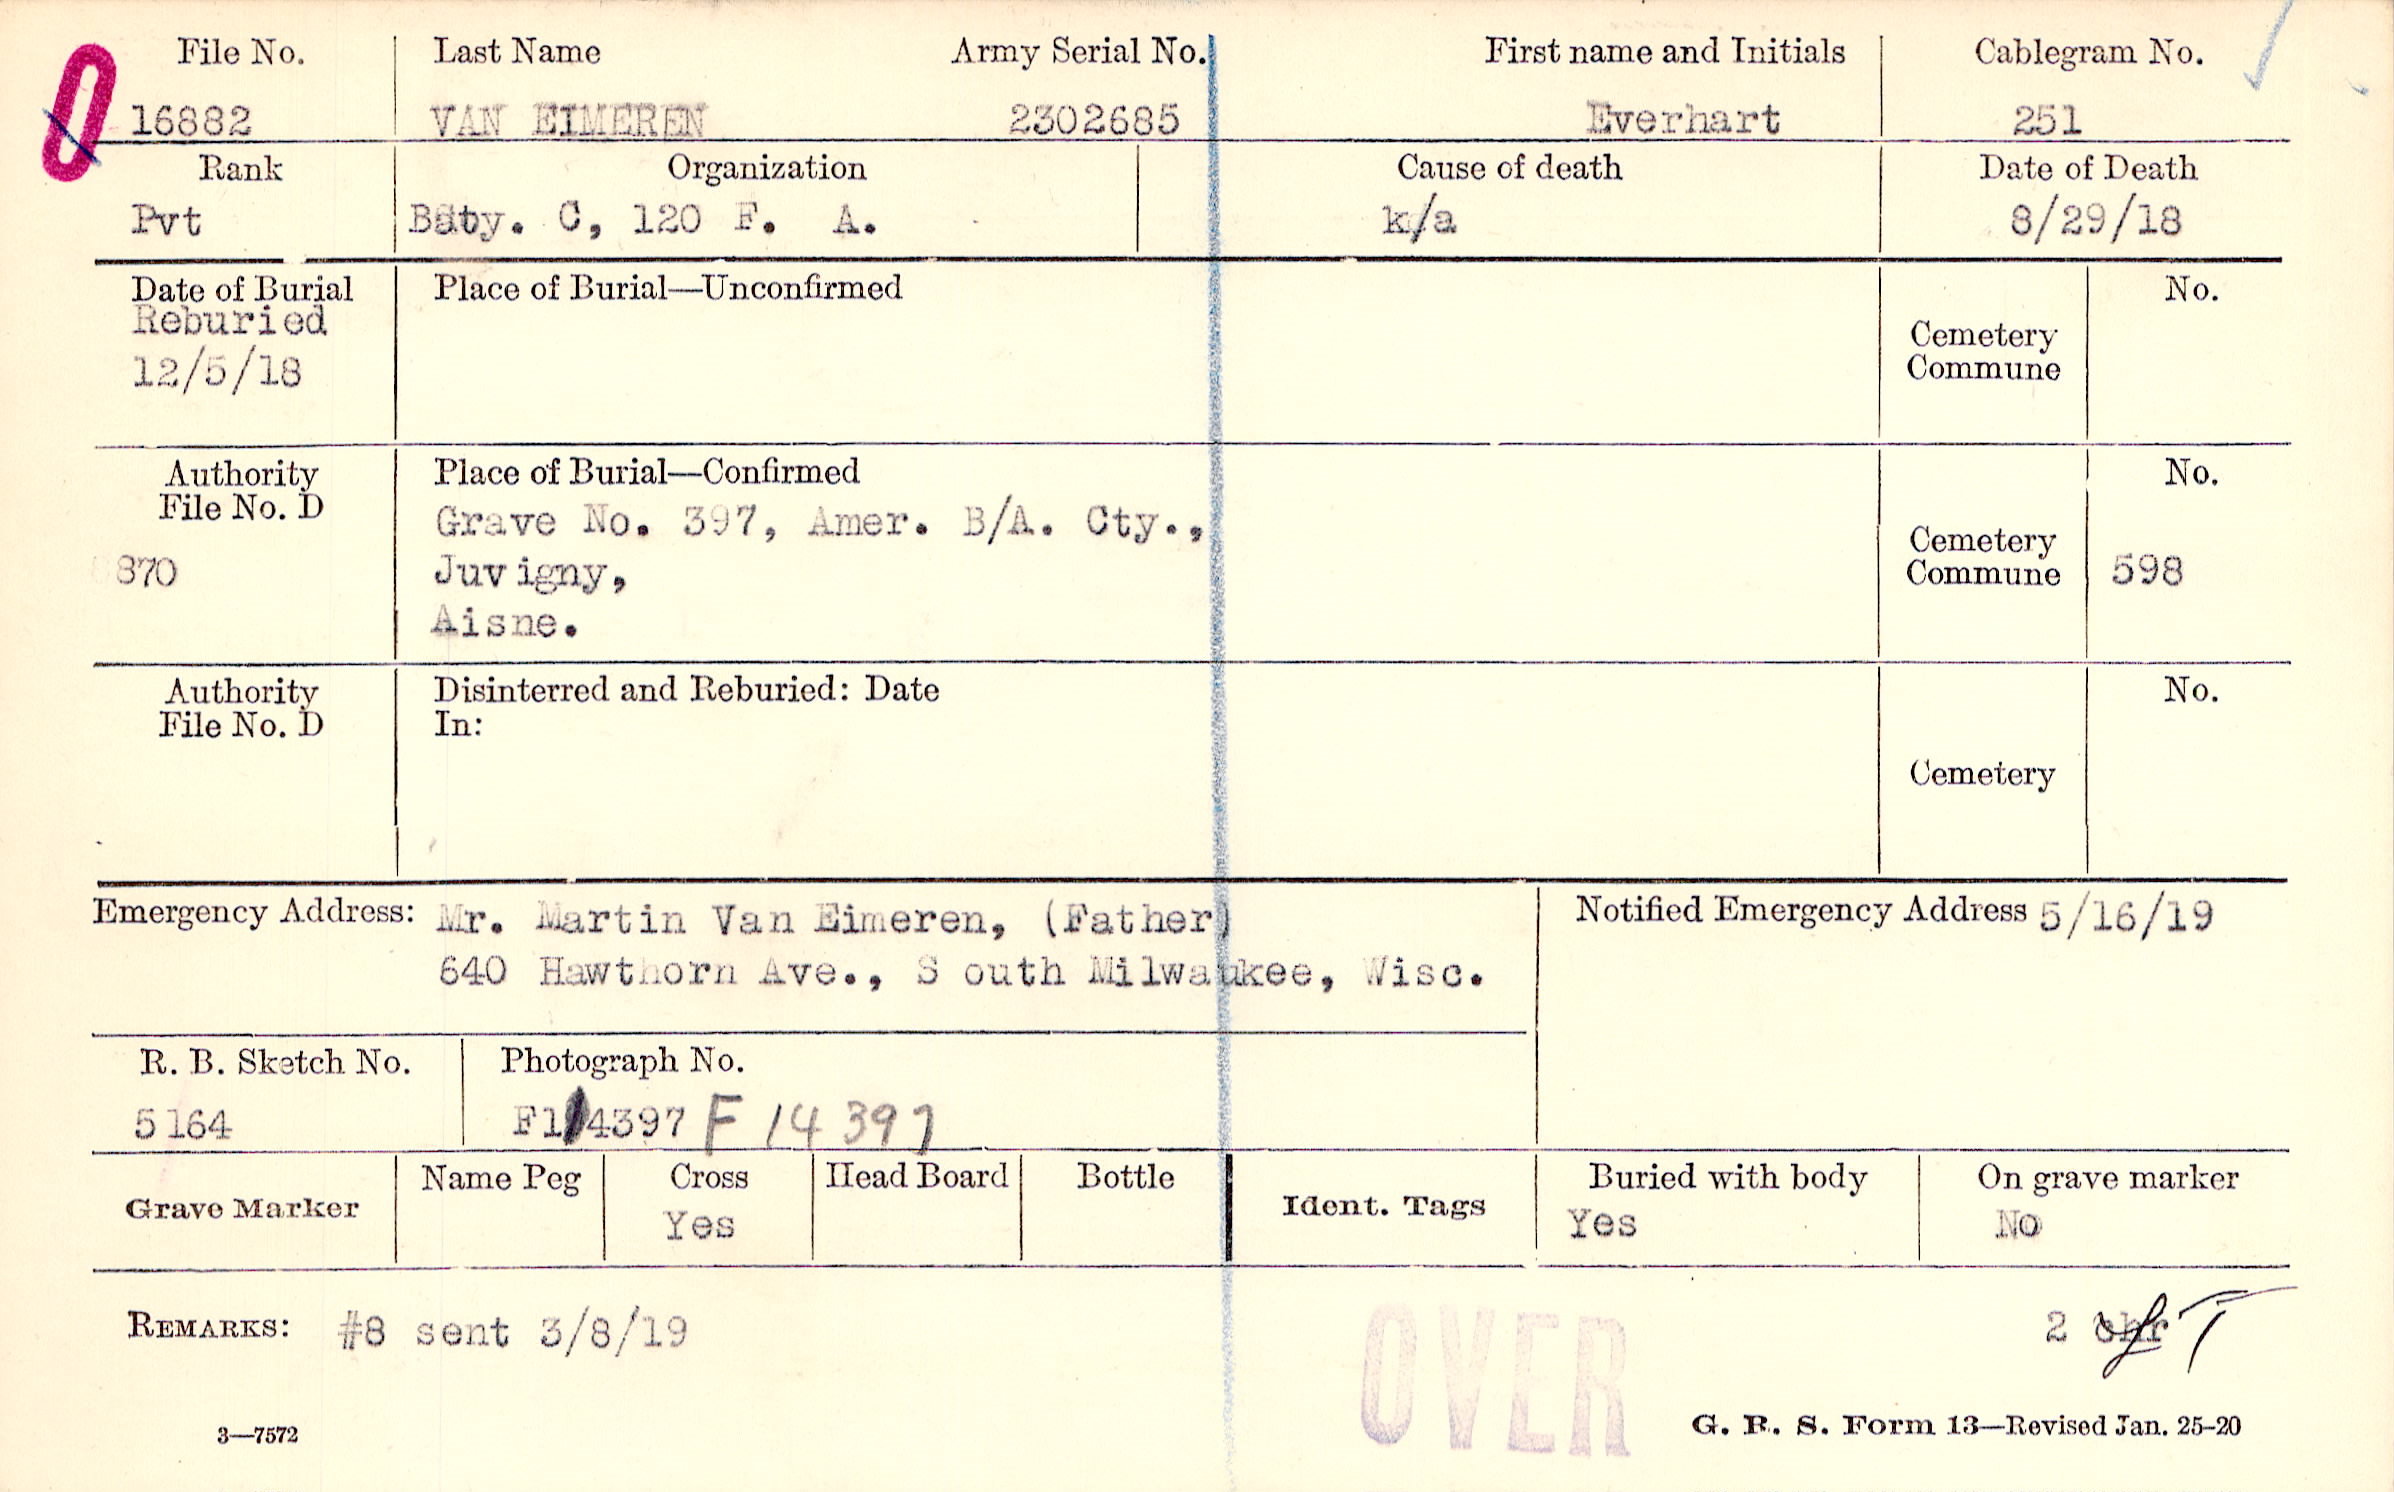 File No. Last Name Army Serial No. First name and Initials Cablegram No.
16882 VAN EIMEREN 2302685 Everhart 251
Rank Organization Cause of death Date of Death
Pvt Baty. C, 120 F. A. k/a 8/29/18
Date of Burial Place of Burial—Unconfirmed No.
Reburied
12/5/18
Cemetery
Commune
Authority Place of Burial—Confirmed No.
File No. D
Grave No. 397, Amer. B/A. Cty.,
870 Juvigny,
Aisne.
Cemetery
Commune 598
Authority Disinterred and Reburied: Date No.
File No. D In:
Cemetery
Emergency Address: Mr. Martin Van Eimeren, (Father) Notified Emergency Address 5/16/19
640 Hawthorn Ave., S outh Milwaukee, Wisc.
R. B. Sketch No. Photograph No.
5164 F14397 F 14397
Grave Marker Name Peg Cross Head Board Bottle Ident. Tags Buried with body On grave marker
Yes Yes No
REMARKS: #8 sent 3/8/19 2
OVER
3—7572 G. R. S. Form 13—Revised Jan. 25-20